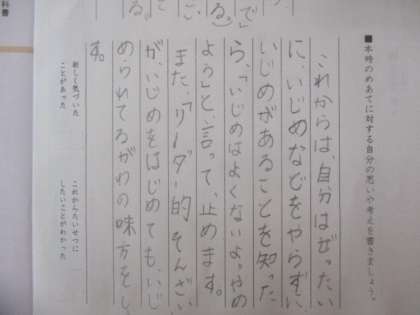 ■本時のめあてに対する自分の思いや考えを書きましょう。
これからは、自分はぜったい
に、いじめなどをやらずに、
いじめがあることを知った
ら、「いじめはよくないよ。やめ
よう」と、言って、止めます。
また、「リーダー的そんざい
が、いじめをはじめても、いじ
められてるがわの味方をし
す。
新しく気づいた
ことがあった
これからたいせつに
したいことがわかった
科書